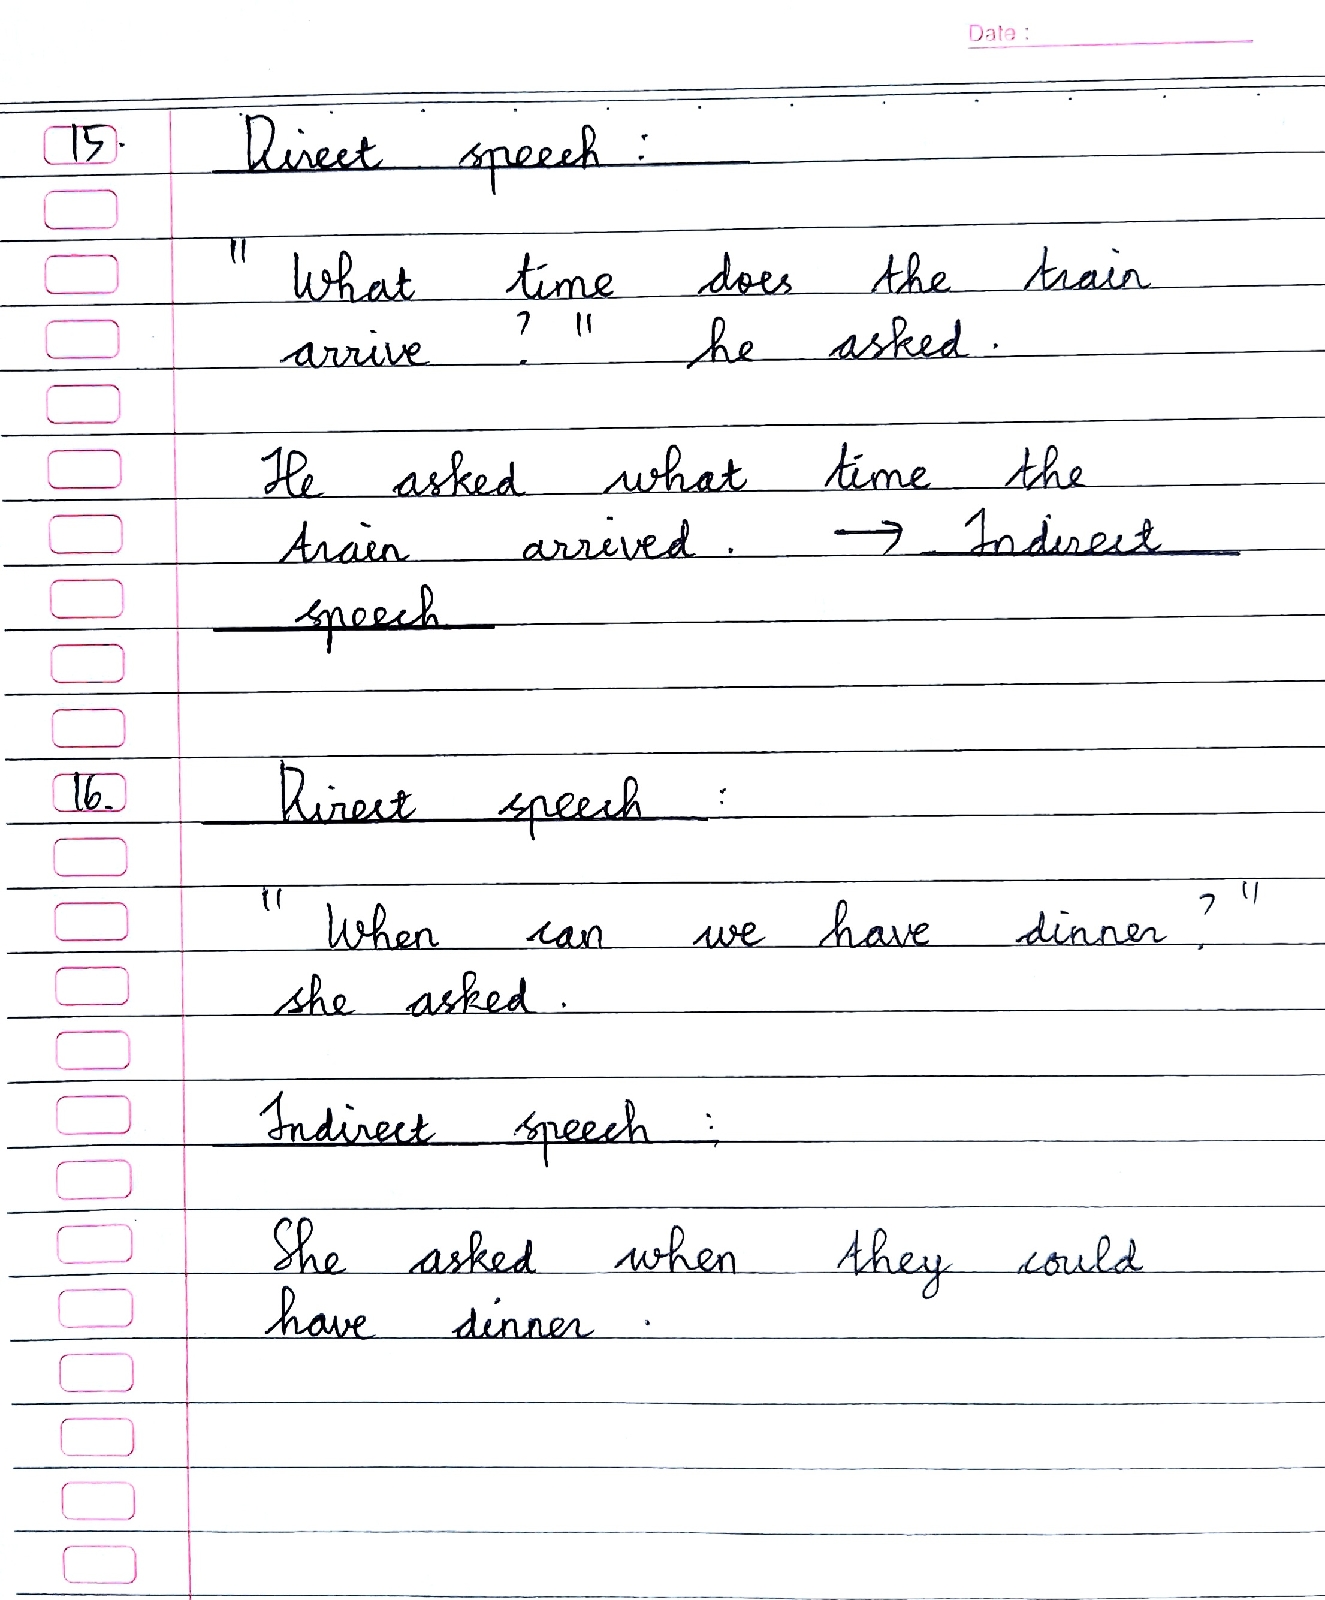 Date :
15. Direct speech :
" What time does the train
arrive ? " he asked .
He asked what time the
train arrived . → Indirect
speech
16. Direct speech :
" When can we have dinner ? "
she asked .
Indirect speech :
She asked when they could
have dinner .